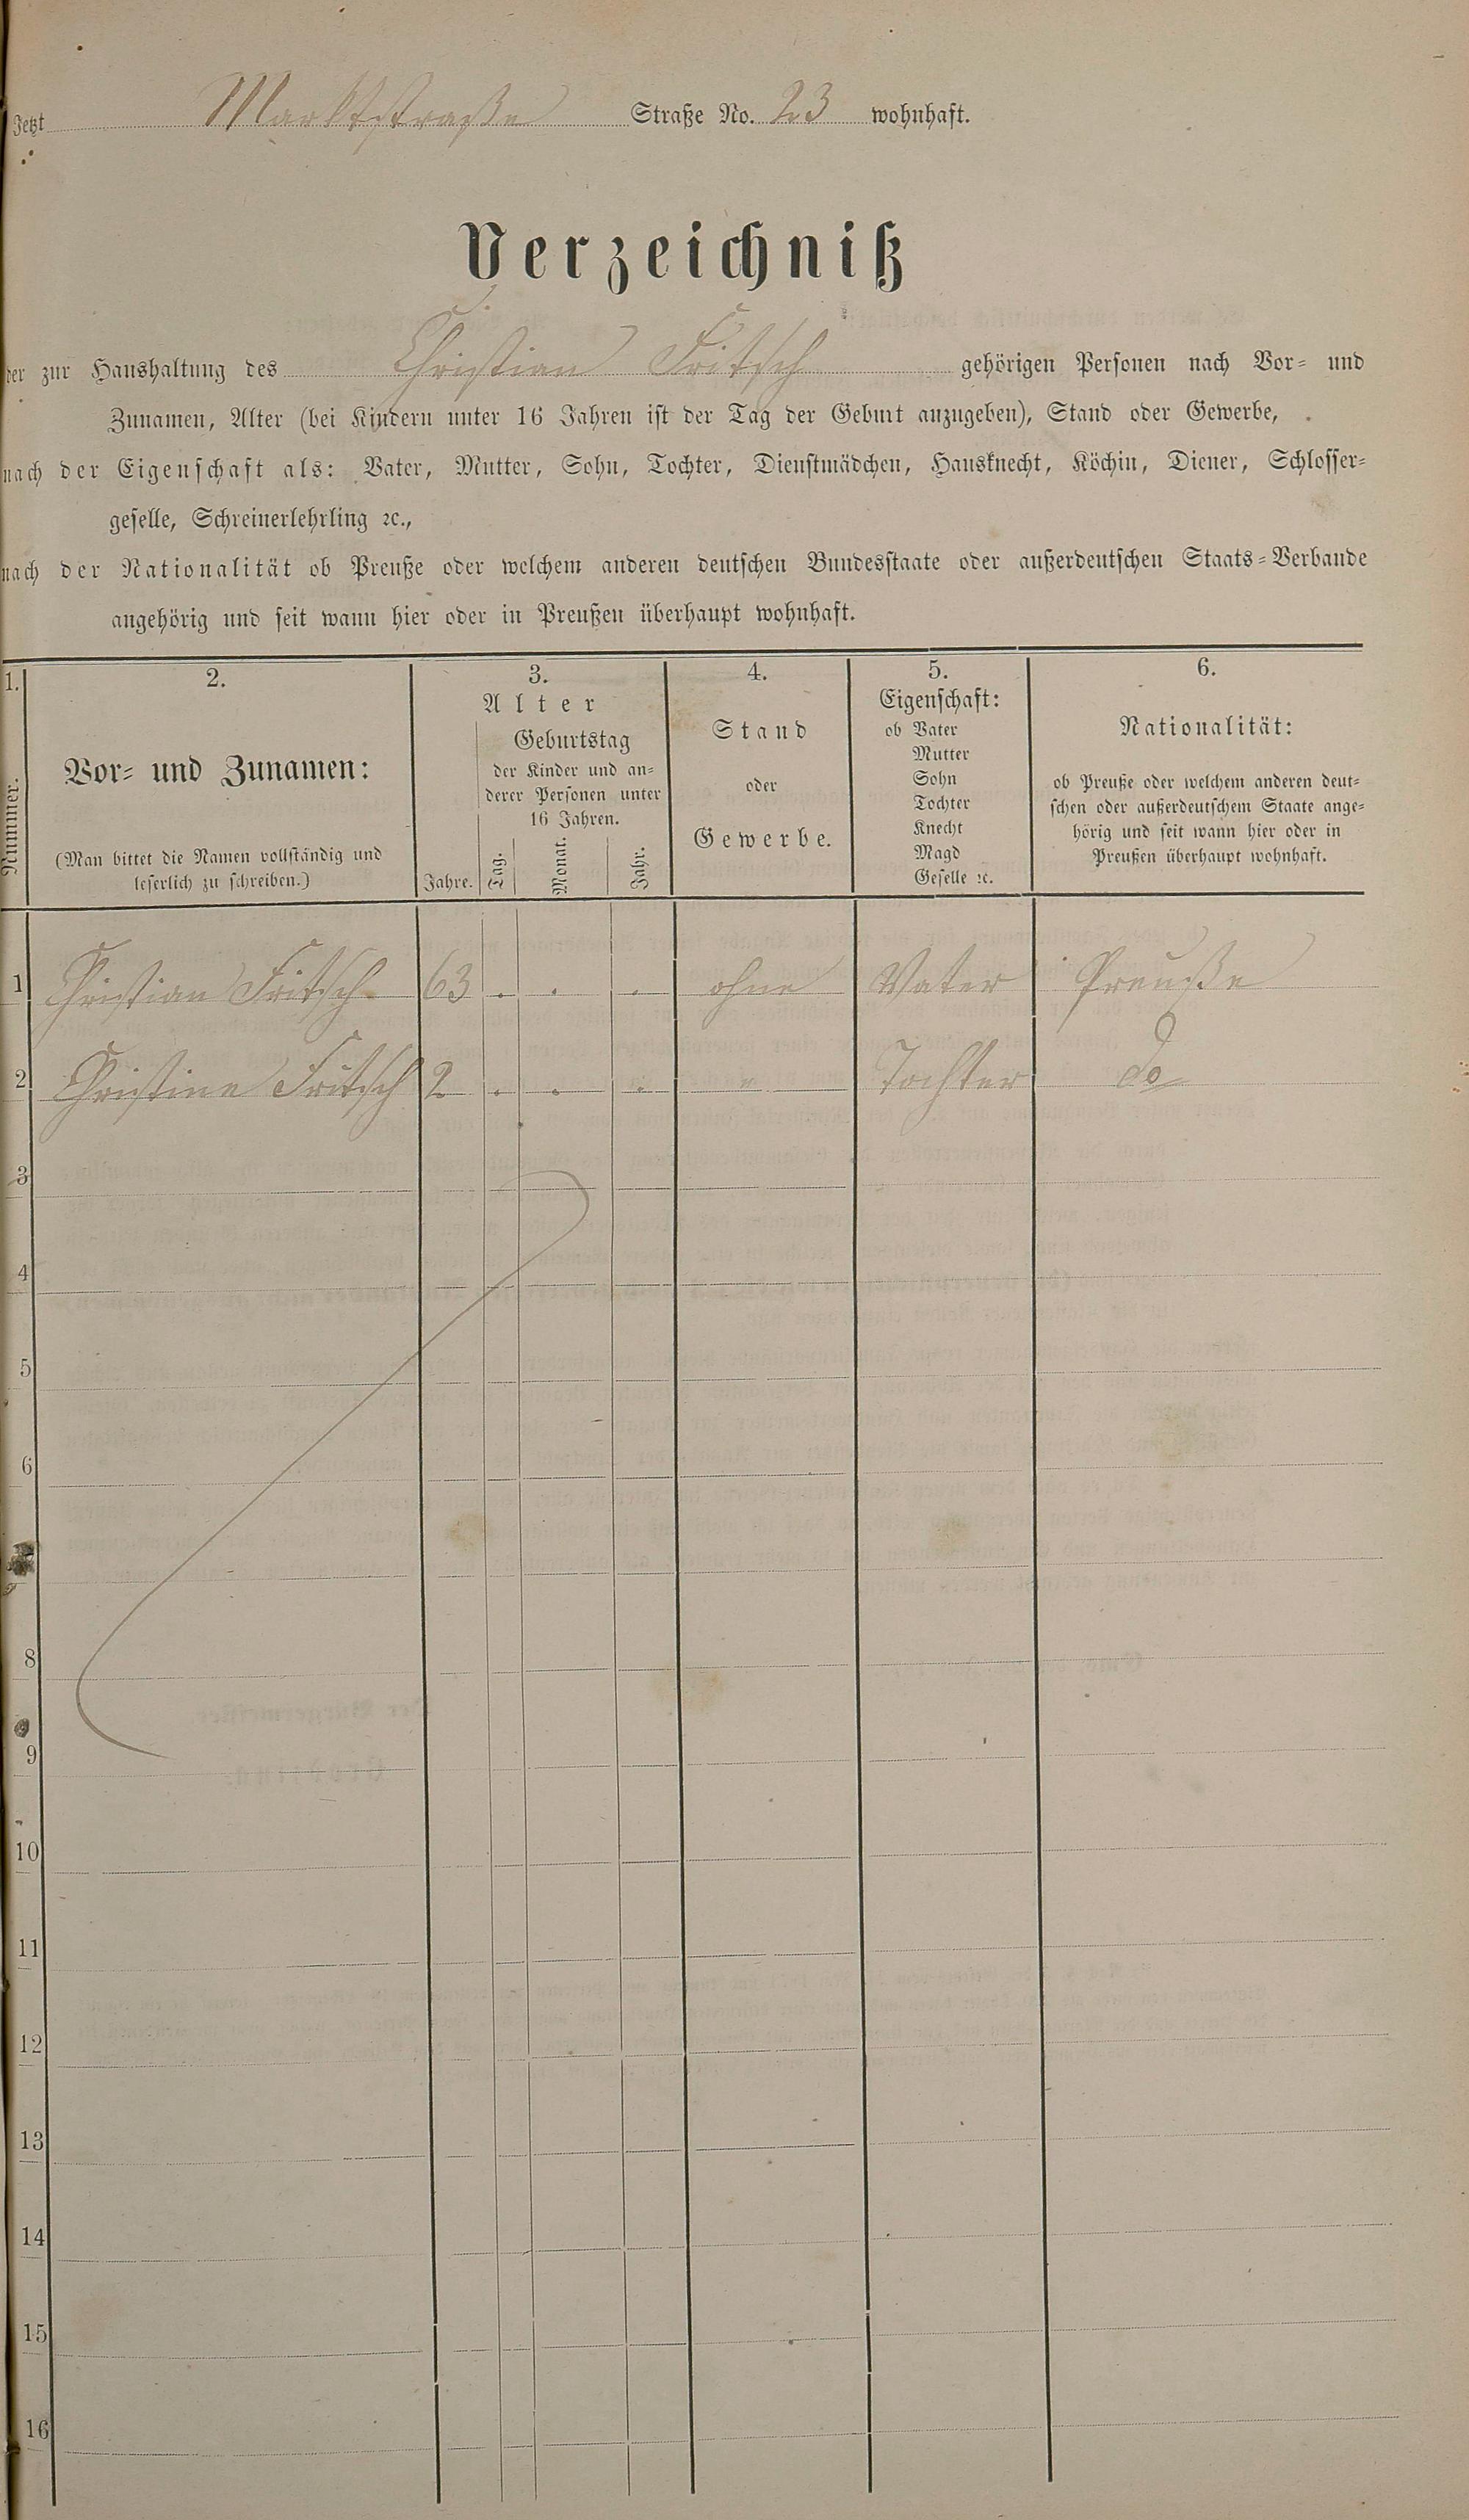 Jetzt Marktstraße Straße No. 23 wohnhaft.
Verzeichniß
der zur Haushaltung des Christian Fritsch gehörigen Personen nach Vor- und
Zunamen, Alter (bei Kindern unter 16 Jahren ist der Tag der Geburt anzugeben), Stand oder Gewerbe,
nach der Eigenschaft als: Vater, Mutter, Sohn, Tochter, Dienstmädchen, Hausknecht, Köchin, Diener, Schlosser-
geselle, Schreinerlehrling ꝛc.,
nach der Nationalität ob Preuße oder welchem anderen deutschen Bundesstaate oder außerdeutschen Staats-Verbande
angehörig und seit wann hier oder in Preußen überhaupt wohnhaft.
1.
Nummer.
2.
Vor- und Zunamen:
(Man bittet die Namen vollständig und
leserlich zu schreiben.)
3.
Alter
Jahre.
Geburtstag
der Kinder und an-
derer Personen unter
16 Jahren.
Tag.
Monat.
Jahr.
4.
Stand
oder
Gewerbe.
5.
Eigenschaft:
ob Vater
Mutter
Sohn
Tochter
Knecht
Magd
Geselle ꝛc.
6.
Nationalität:
ob Preuße oder welchem anderen deut-
schen oder außerdeutschem Staate ange-
hörig und seit wann hier oder in
Preußen überhaupt wohnhaft.
1 Christian Fritsch 63 . . . ohne Vater Preuße
2 Christine Fritsch 2 . . . " Tochter do
3
4
5
6
8
9
10
11
12
13
14
15
16